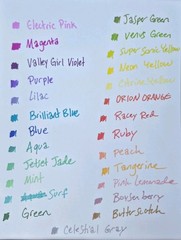 Electric Pink
Magenta
Valley Girl Violet
Purple
Lilac
Brilliant Blue
Blue
Aqua
Jetset Jade
Mint
Surf
Green
Jasper Green
Vens Green
Super Sonic Yellow
Neon Yellow
Yellow
ORION ORANGE
Racey Red
Ruby
Peach
Tangerine
Pink Lemonade
Boysenberry
Butterscotch
Celestial Gray